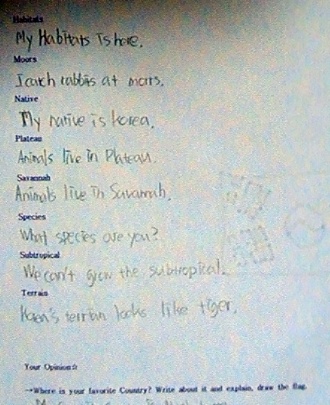 Habitats
My Habitats is here.
Moors
I catch rabbis at mors.
Native
My native is korea.
Plateau
Animals live in Plateau.
Savannah
Animals live in Savannah.
Species
What species are you?
Subtropical
We can't grow the subtropical.
Terrain
terrian looks like tiger.
Your Opinion☆
→Where is your favorite Country? Write about it and explain, draw the flag.